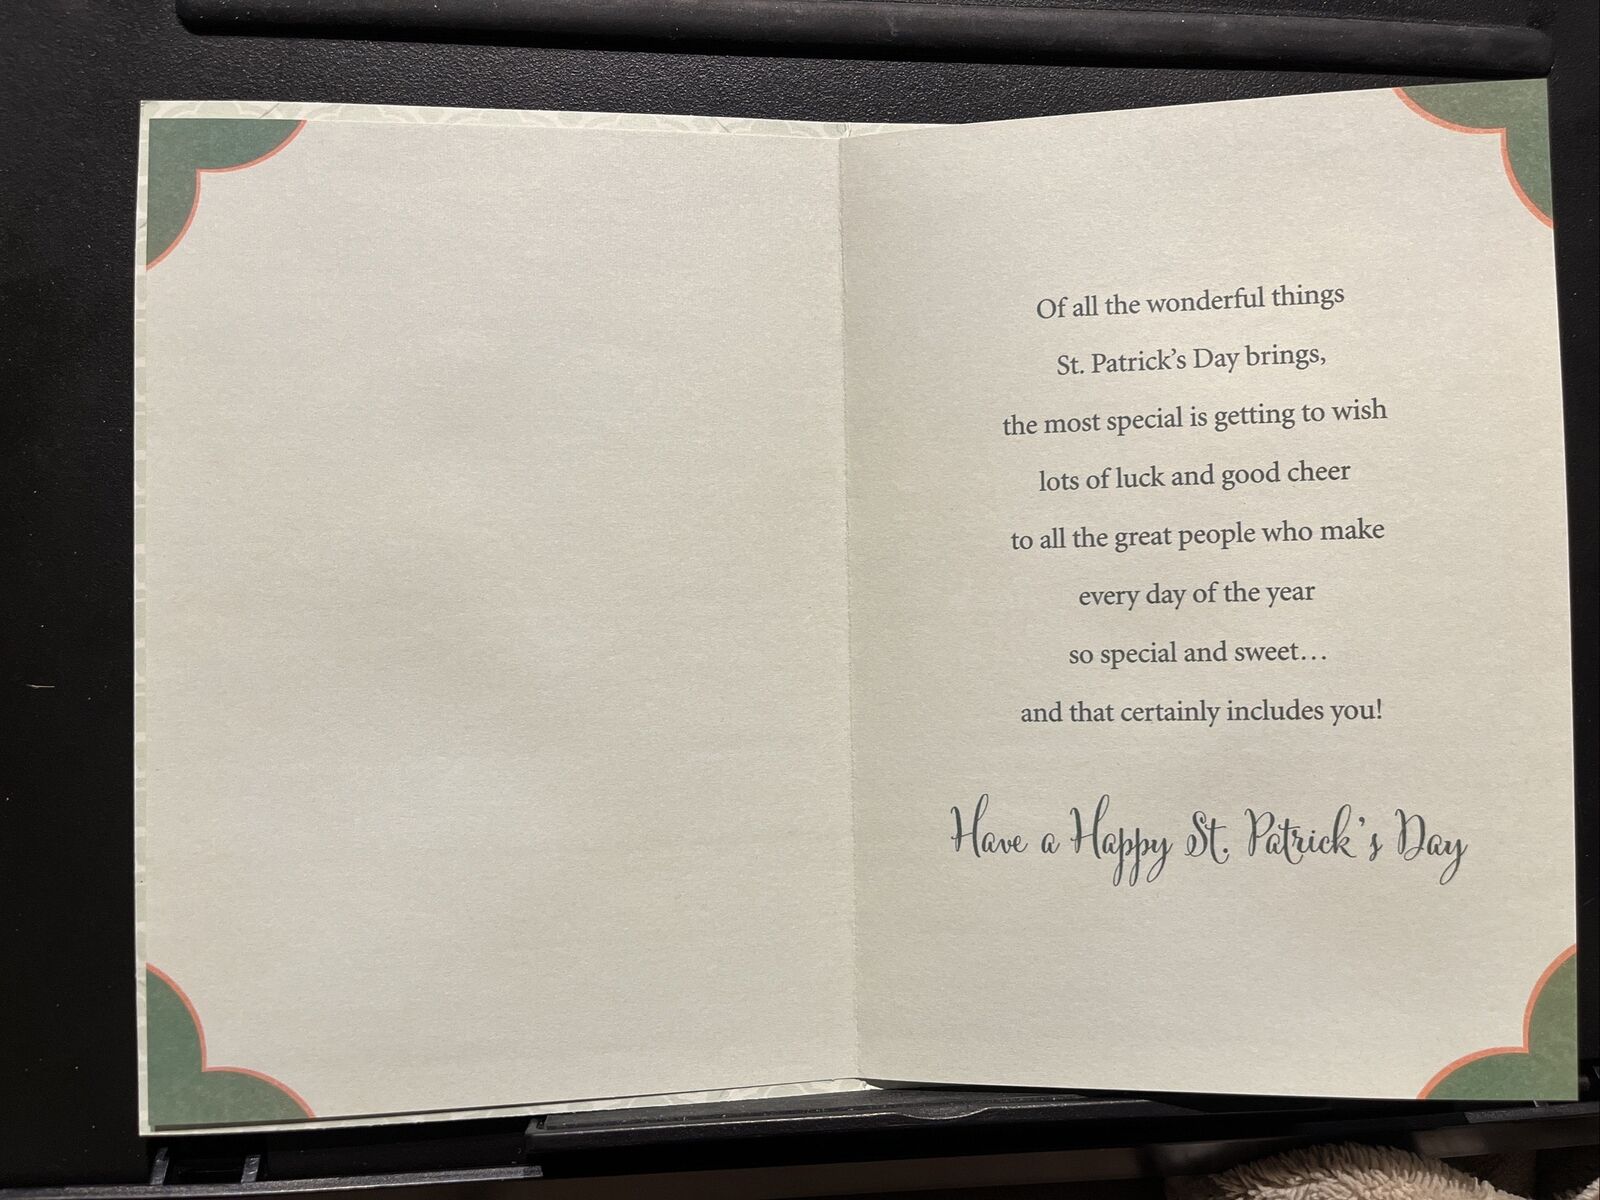 Of all the wonderful things
St. Patrick’s Day brings,
the most special is getting to wish
lots of luck and good cheer
to all the great people who make
every day of the year
so special and sweet…
and that certainly includes you!
Have a Happy St. Patrick’s Day